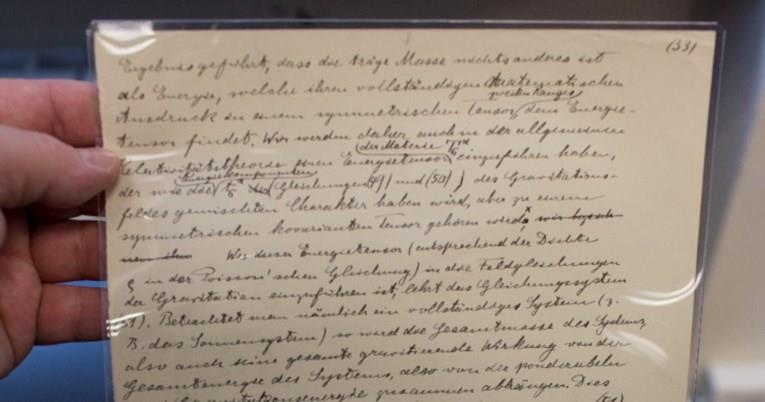 (33)
Ergebnis geführt, dass die träge Masse nichts anderes ist
als Energie, welche ihren vollständigen mathematischen
zweiten Ranges
Ausdruck in einem symmetrischen Tensor dem Energie-
tensor findet. Wir werden daher auch in der allgemeinen
der Materie T
Relativitätstheorie einen Energietensor einzuführen haben,
Energiekomponenten
der wie die t der Gleichungen (49) und (50) des Gravitations-
feldes gemischten Charakter haben wird, aber zu einem
symmetrischen kovarianten Tensor gehören wird
Wie dieser Energietensor (entsprechend der Dichte
ρ in der Poisson'schen Gleichung) in die Feldgleichungen
der Gravitation einzuführen ist, lehrt das Gleichungssystem
51). Betrachtet man nämlich ein vollständiges System (z.
B. das Sonnensystem) so wird die Gesamtmasse des Systems,
also auch seine gesamte gravitierende Wirkung von der
Gesamtenergie des Systems, also von der ponderabeln
zusammen abhängen. Dies